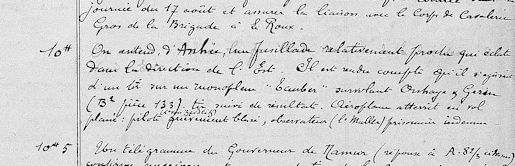 journée du 17 août et assurer la liaison avec le Corps de Cavalerie
Gros de la Brigade à Le Roux.
10H On entend d'Anhée, une fusillade relativement proche qui éclate
dans la direction de l'Est. Il est rendu compte qu'il s'agirait
d'un tir sur un monoplan "Tauber" survolant Onhaye &
(Bie 133) tir suivi de résultat. Aéroplane atterrit en vol
plané : pilote grièvement blessé, observateur (Lt Muller) prisonnier indemne
10H 5 Un télégramme du Gouverneur de Namur (réponse à